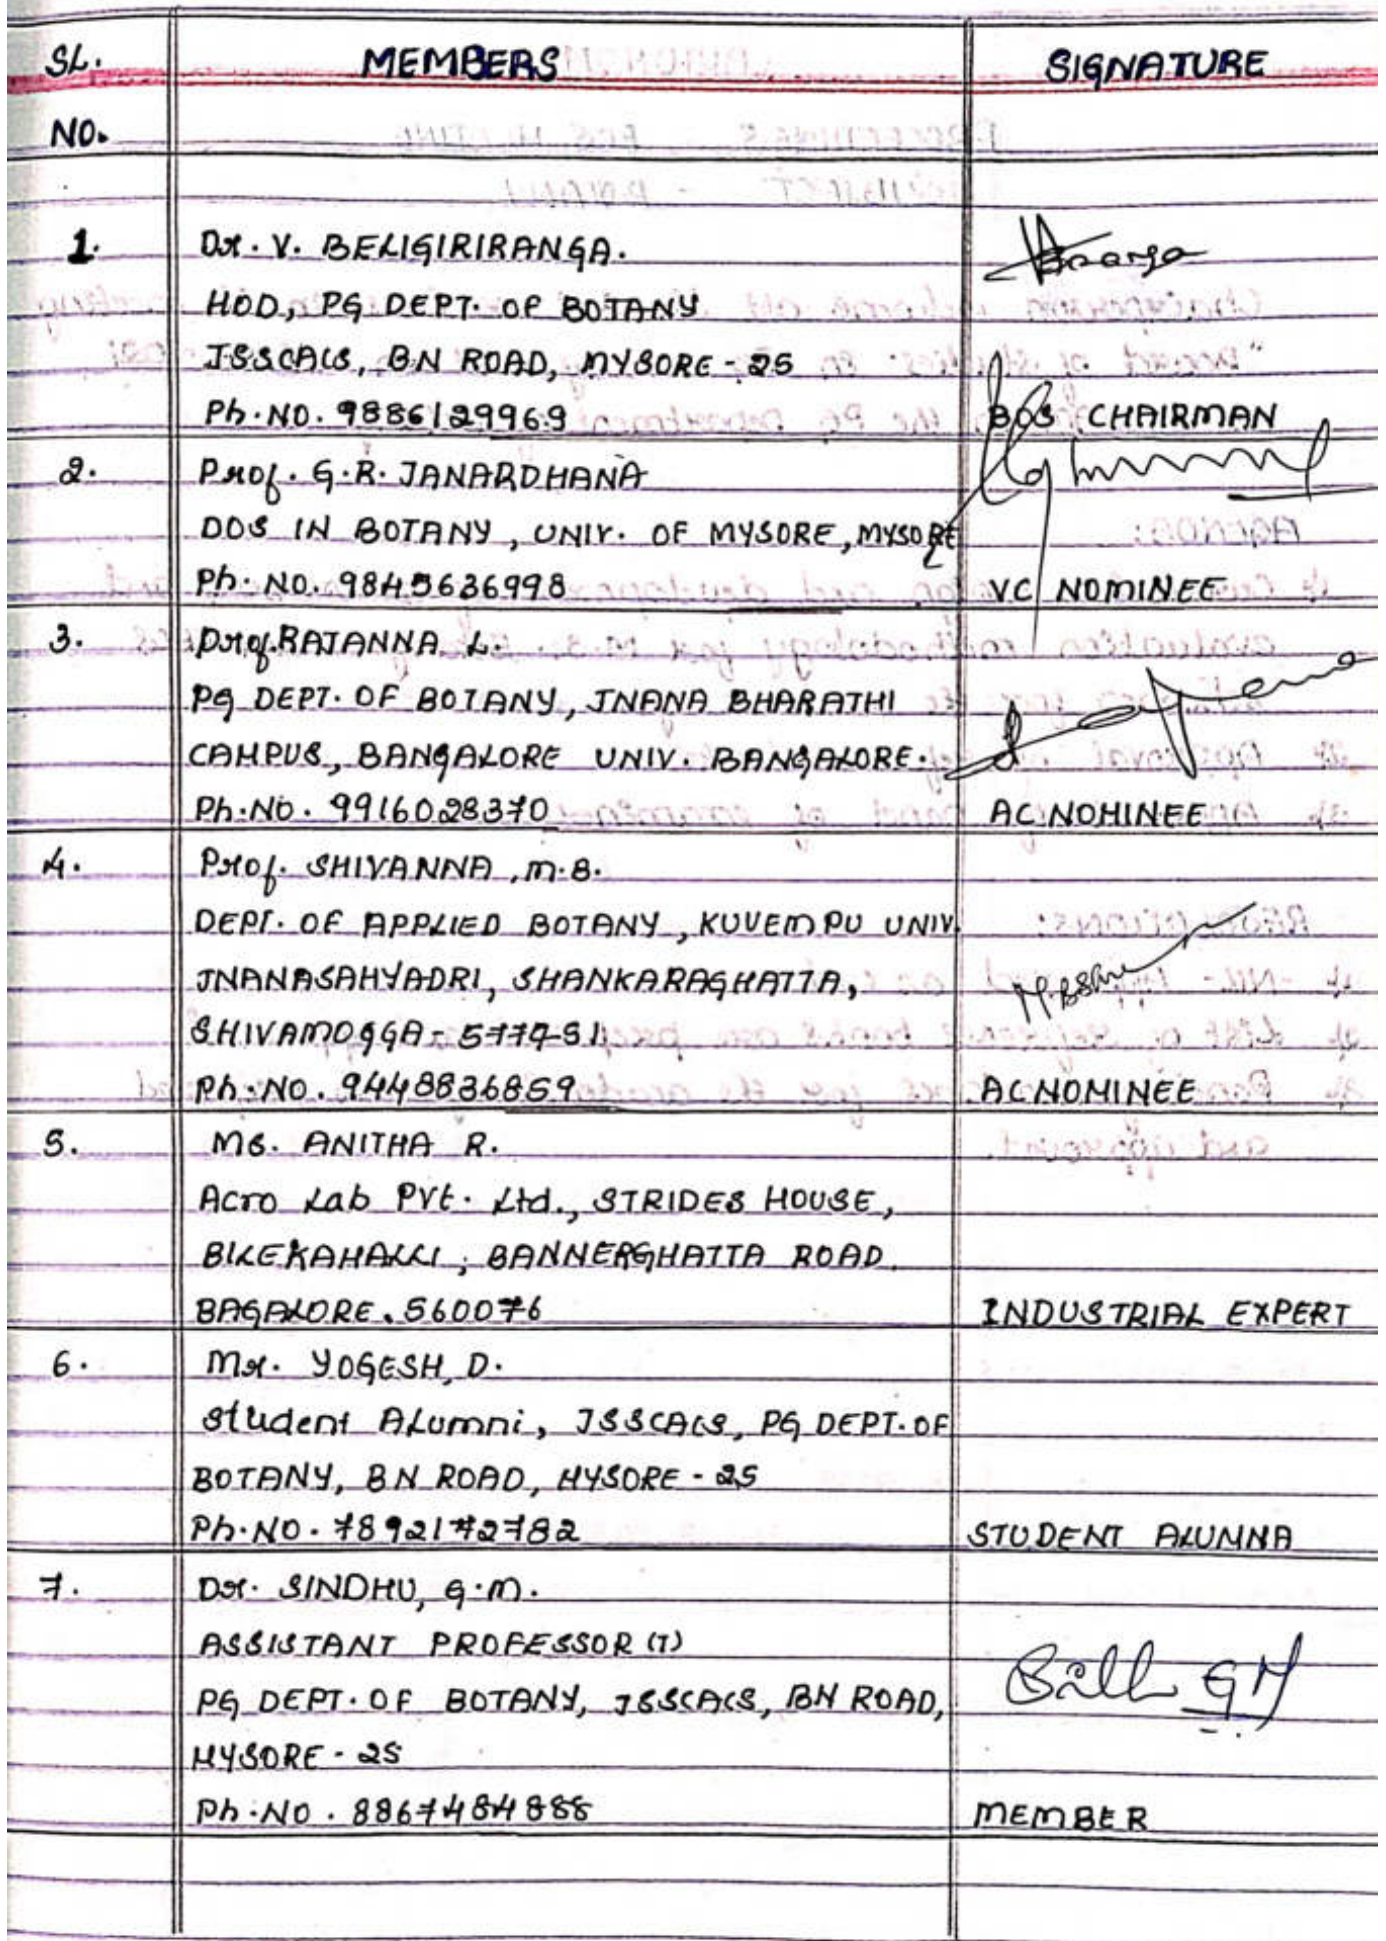 SL. MEMBERS SIGNATURE
NO.
1. Dr. V. BELIGIRIRANGA.
HOD, PG DEPT. OF BOTANY
JSSCACS, BN ROAD, MYSORE - 25
Ph. NO. 9886129969 BOS CHAIRMAN
2. Prof. G.R. JANARDHANA
DOS IN BOTANY, UNIV. OF MYSORE, MYSORE
Ph. NO. 9845636998 VC NOMINEE
3. Prof. RAJANNA L.
PG DEPT. OF BOTANY, JNANA BHARATHI
CAMPUS, BANGALORE UNIV. BANGALORE.
Ph. NO. 9916028370 AC NOMINEE
4. Prof. SHIVANNA, M.B.
DEPT. OF APPLIED BOTANY, KUVEMPU UNIV.
JNANASAHYADRI, SHANKARAGHATTA,
SHIVAMOGGA - 577451
Ph. NO. 9448836859 AC NOMINEE
5. MS. ANITHA R.
Acro Lab Pvt. Ltd., STRIDES HOUSE,
BILEKAHALLI, BANNERGHATTA ROAD
BAGALORE. 560076 INDUSTRIAL EXPERT
6. Mr. YOGESH, D.
Student Alumni, JSSCACS, PG DEPT. OF
BOTANY, BN ROAD, MYSORE - 25
Ph. NO. 7892172782 STUDENT ALUMNA
7. Dr. SINDHU, G.M.
ASSISTANT PROFESSOR (T)
PG DEPT. OF BOTANY, JSSCACS, BN ROAD,
GM
MYSORE - 25
Ph. NO. 8867484888 MEMBER